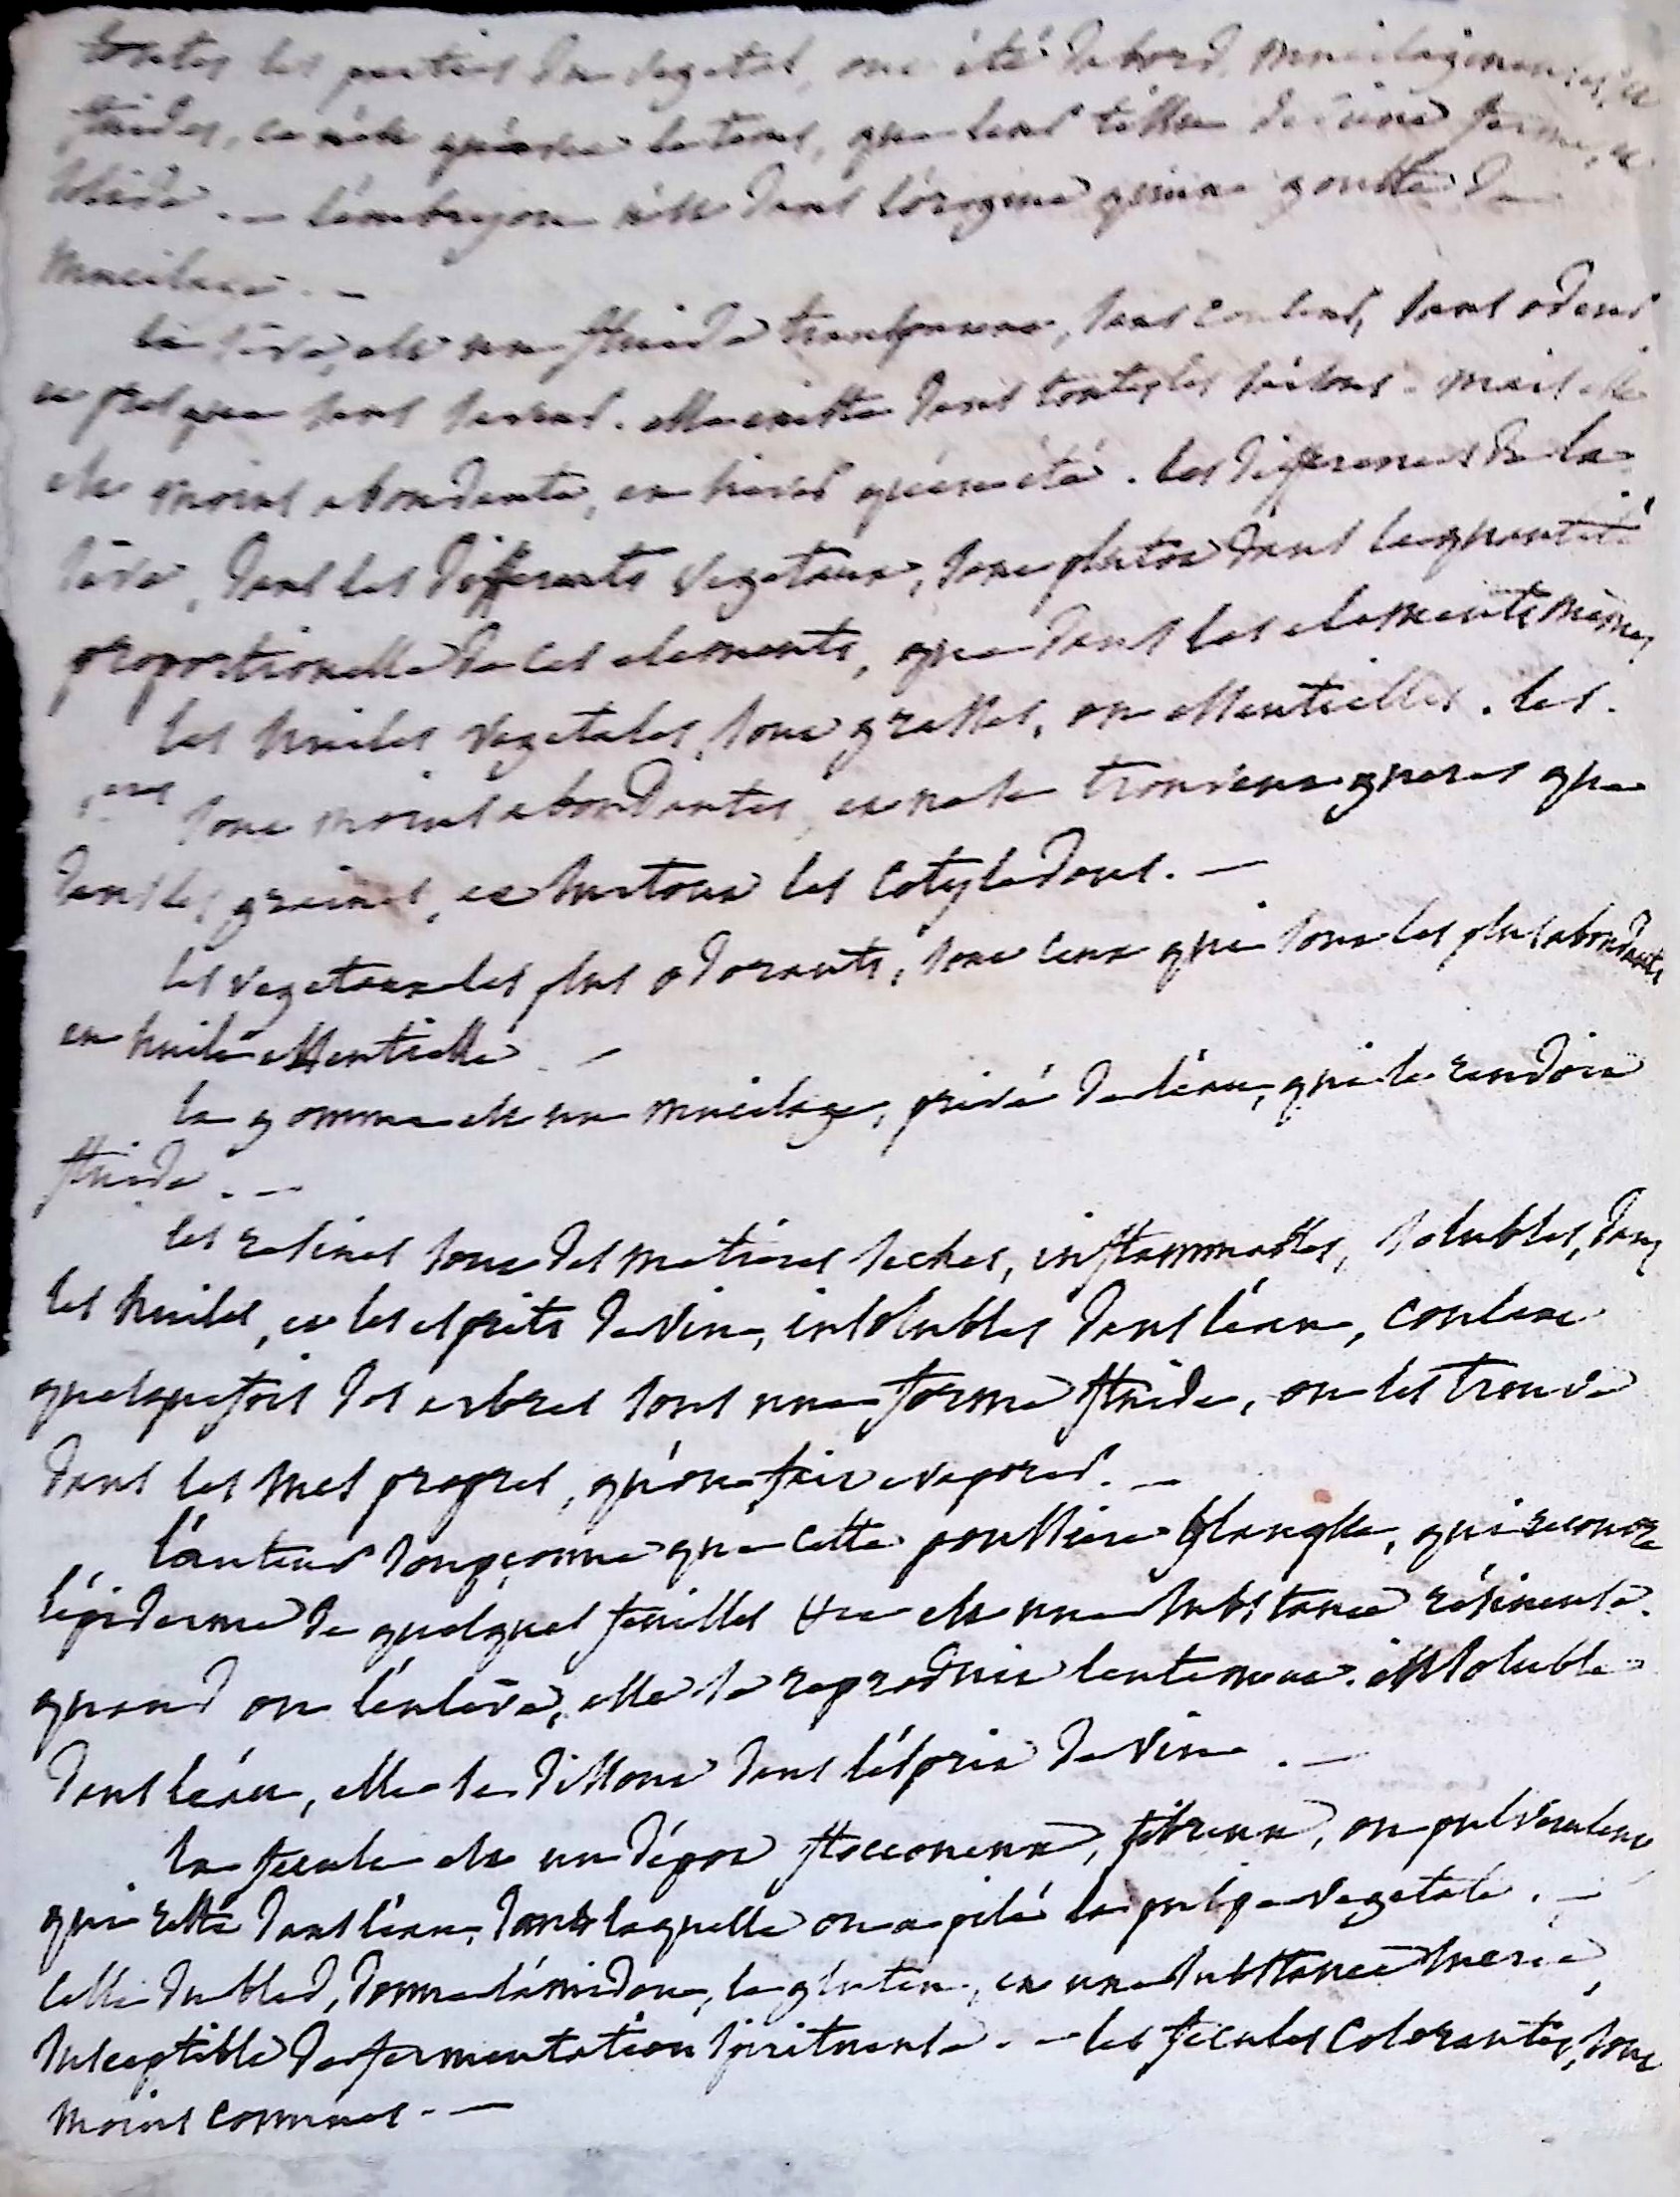 toutes les parties du vegetal, ont été dabord mucilagineuses, et
fluides, ce n'est qu'avec le tems, que leur tissu devient ferme, et
solide. — l'embryon n'est dans l'origine qu'une goutte de
mucilage. —
la séve, est un fluide transparent, sans couleur, sans odeur
et presque sans saveur. elle existe dans toutes les saisons. mais elle
est moins abondante, en hiver qu'en été. les differences de la
séve, dans les differents vegetaux, sont plutot dans la quantité
proportionelle de ces elements, que dans les elements mêmes
les huiles vegetales, sont grasses, ou essentielles. les
1eres sont moins abondantes, et ne se trouvent gueres que
dans les graines, et surtout les cotyledons. —
les vegetaux les plus odorants, sont ceux qui sont les plus abondants
en huile essentielle. —
la gomme est un mucilage, privé de l'eau, qui le rendoit
fluide. —
les resines sont des matieres seches, inflammables, solubles, dans
les huiles, et les esprits de vin, insolubles dans l'eau, coulent
quelquefois des arbres sous une forme fluide, on les trouve
dans les sucs propres, qu'on fait evaporer. —
l'auteur soupçonne que cette poussiere blanche, qui recouvre
l'épiderme de quelques feuilles est une substance résineuse.
quand on l'enlève, elle se reproduit lentement. insoluble
dans l'eau, elle se dissout dans l'esprit de vin. —
la fecule est un dépot floconeux, fibreux, ou pulverulent
qui reste dans l'eau, dans laquelle on a pilé la pulpe vegetale. —
celle du bled, donne l'amidon, le gluten, et une substance sucrée,
susceptible de fermentation spiritueuse. — les fecules colorantes, sont
moins communes. —